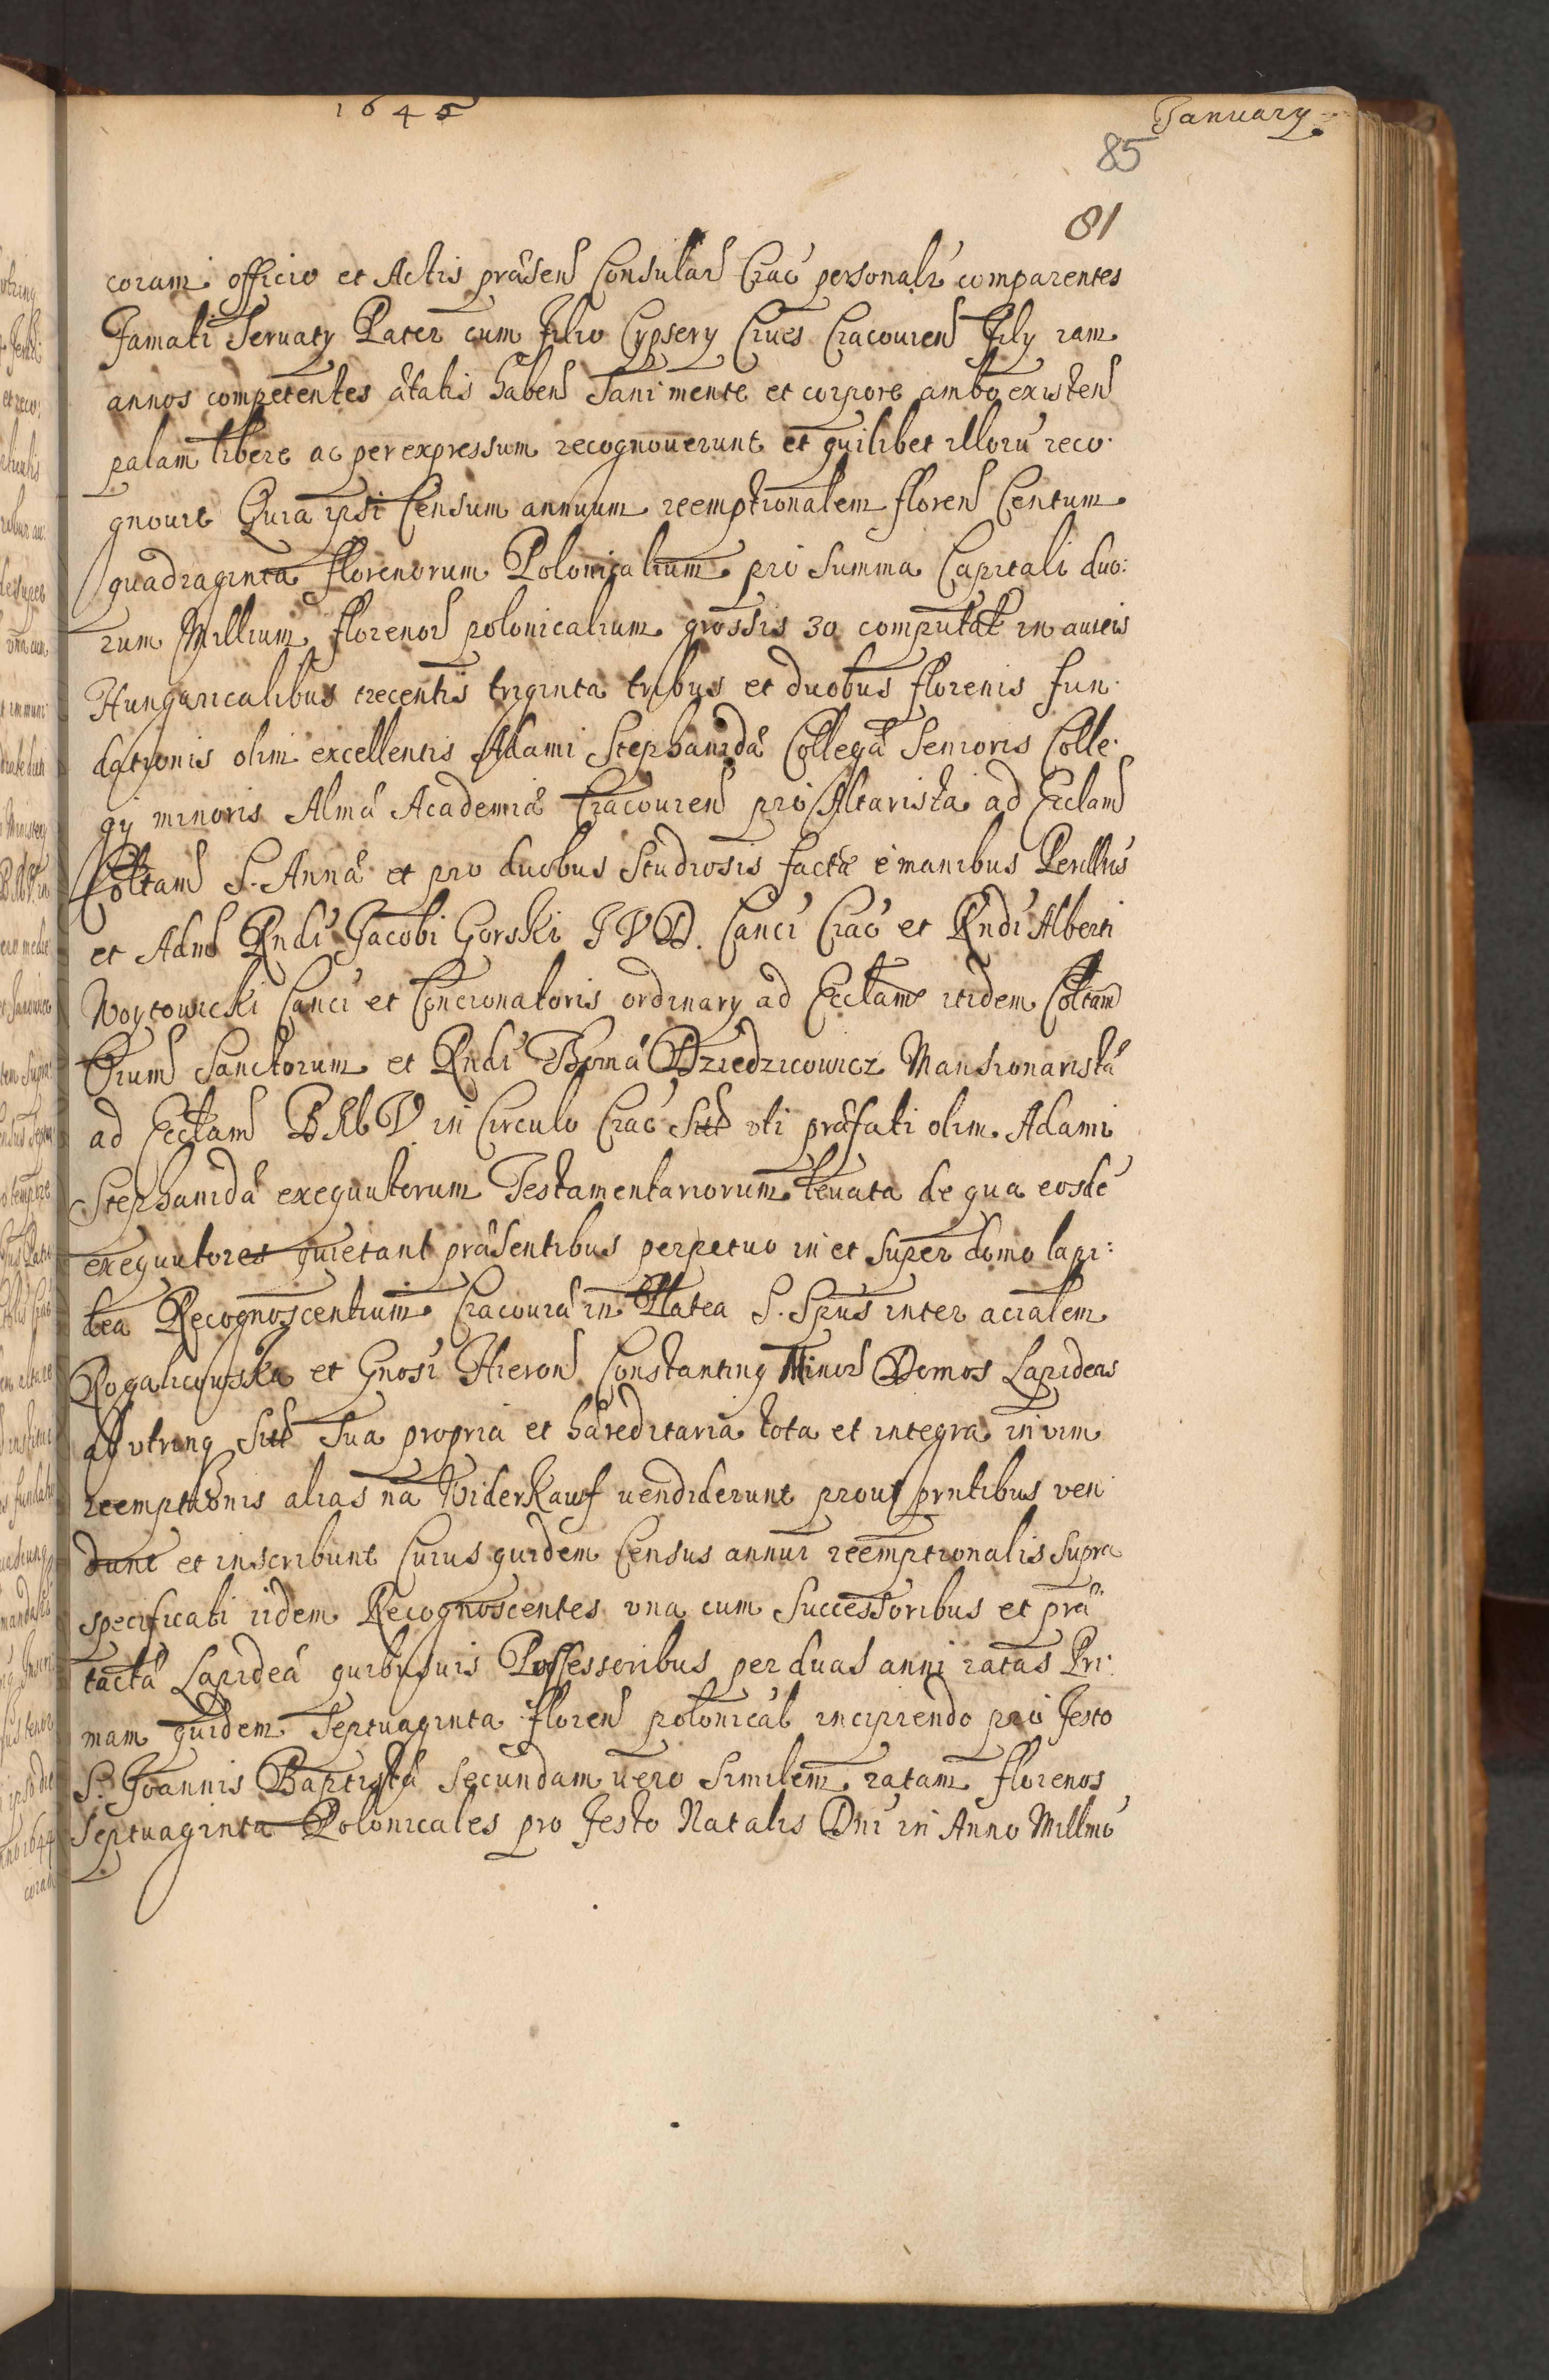 1645 January
85
81
coram officio et Actis præsen Consular Crac personalr comparentes
Famati Servaty Pater cum Filio Cypsery Cives Cracovien Fily iam
annos competentes ætatis haben Sani mente et corpore ambo existen
palam libere ac per expressum recognoverunt et quilibet illorū reco:
gnovit Quia ipsi Censum annuum reemptionalem floren Centum
quadraginta florenorum Polonicalium pro Summa Capitali duo:
rum Millium florenor polonicalium grossis 30 computat in aureis
Hungaricalibus trecentis triginta tribus et duobus florenis fun:
dationis olim excellentis Adami Stephanidæ Collegæ Senioris Colle:
gij minoris Almæ Academiæ Cracovien pro Altarista ad Ecclam
Coltam S. Annæ et pro duobus Studiosis factæ è manibus Perillris
et Adm Rndi Jacobi Gorski J V D. Canci Crac et Rndi Alberti
Woytowicki Canci et Concionatoris ordinary ad Ecclam itidem Coltam
Oium Sanctorum et Rndi Thomæ Dziedzicowicz Mansionaristæ
ad Ecclam B M V in Circulo Crac Sit uti præfati olim Adami
Stephanidæ exequutorum Testamentariorum levata de qua eosdē
exequutores quietant præsentibus perpetuo in et super domo lapi:
dea Recognoscentium Cracoviæ in Platea S. Spūs inter acialem
Rogalicowska et Gnosi Hieron Constantiny Minor Domos Lapideas
ab utrinq Sit Sua propria et hæreditaria tota et integra in vim
reemptionis alias na Widerkauf vendiderunt prout prntibus ven
dunt et inscribunt Cuius quidem Census annui reemptionalis supra
specificati iidem Recognoscentes una cum Successoribus et præ
tactæ Lapideæ quibusvis Possessoribus per duas anni ratas Pri:
mam quidem Septuaginta floren polonical incipiendo pro Festo
S. Joannis Baptistæ Secundam vero Similem ratam florenos
Septuaginta Polonicales pro Festo Natalis Dni in Anno Millmo